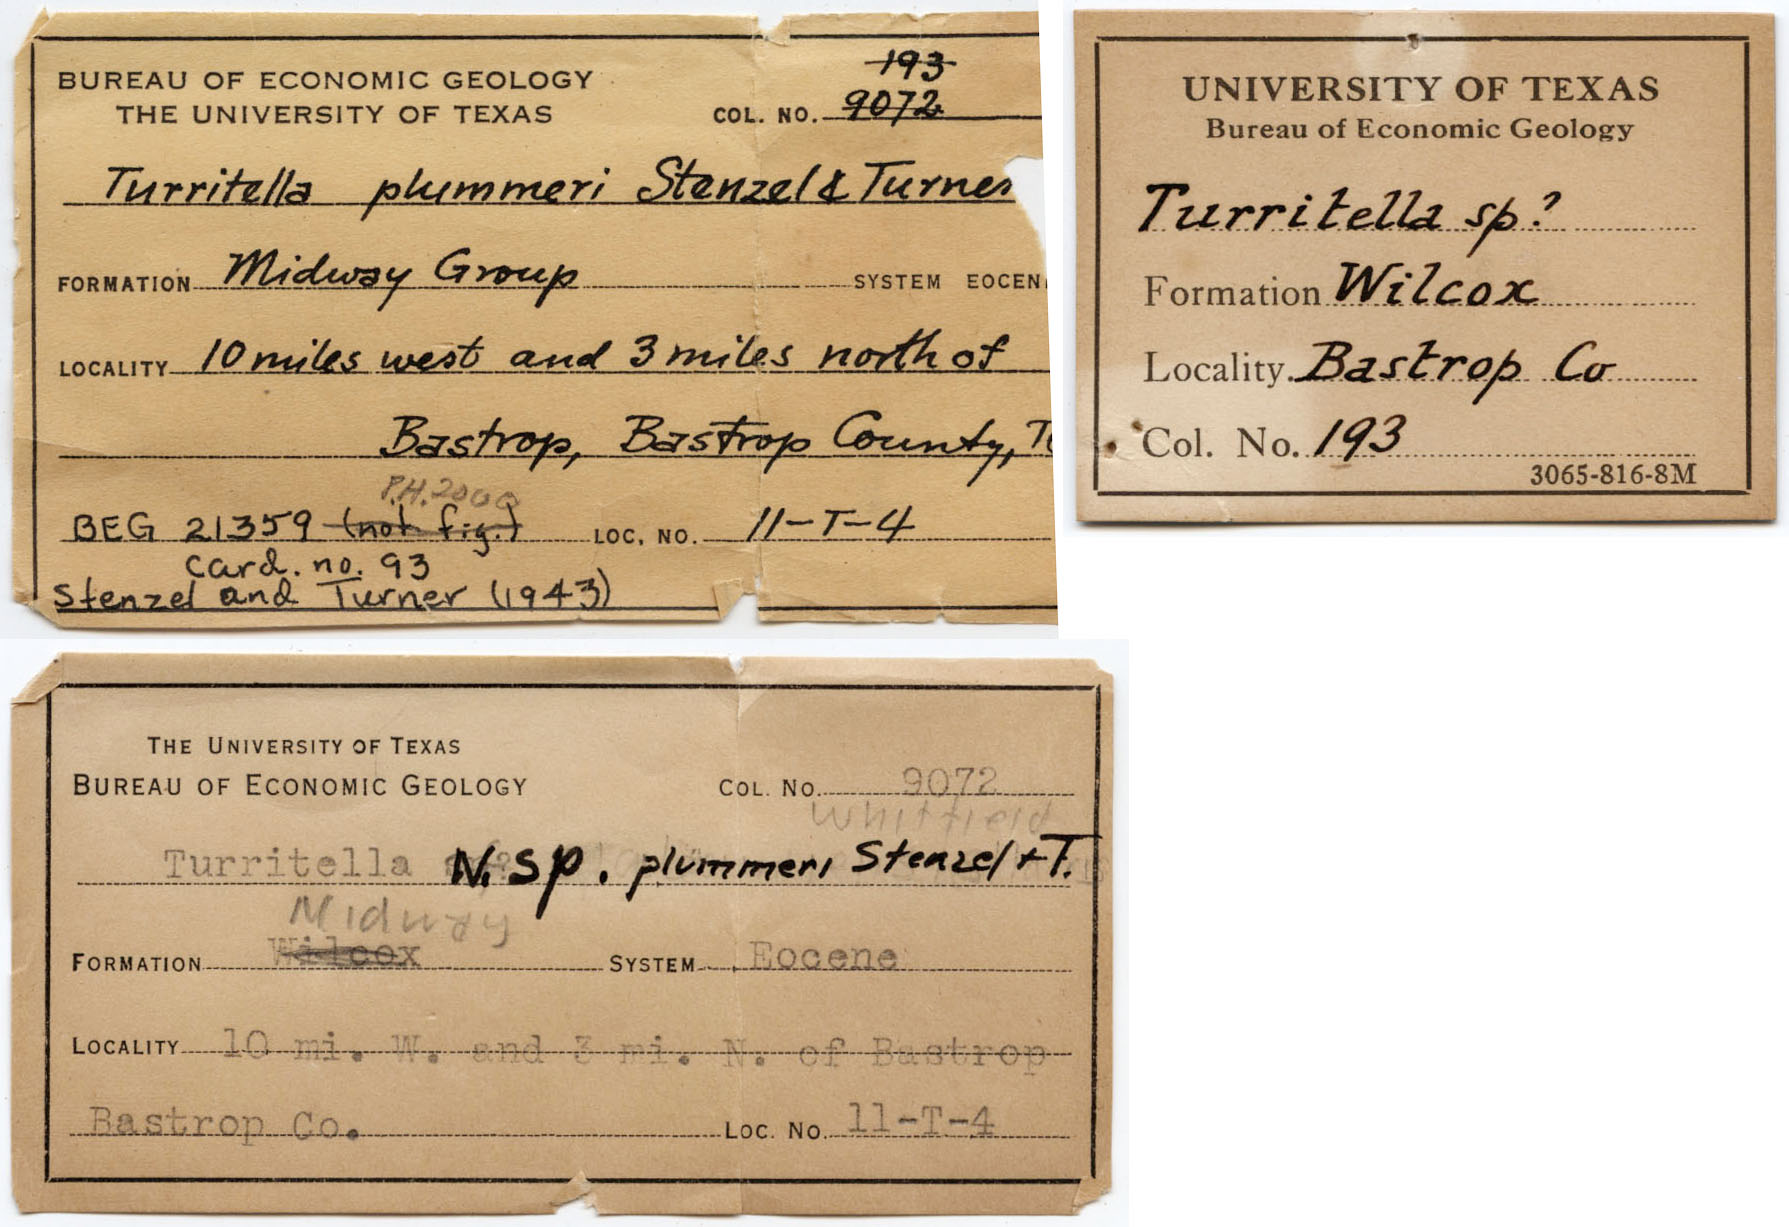 BUREAU OF ECONOMIC GEOLOGY
THE UNIVERSITY OF TEXAS
193
COL. NO. 9072
Turritella plummeri Stenzel & Turner
FORMATION Midway Group SYSTEM EOCEN
LOCALITY 10 miles west and 3 miles north of
Bastrop, Bastrop County, T
P.H. 2000
BEG 21359 (not fig.) LOC. NO. 11-T-4
card. no. 93
Stenzel and Turner (1943)
UNIVERSITY OF TEXAS
Bureau of Economic Geology
Turritella sp?
Formation Wilcox
Locality. Bastrop Co
Col. No. 193
3065-816-8M
THE UNIVERSITY OF TEXAS
BUREAU OF ECONOMIC GEOLOGY
COL. NO. 9072
Whitfield
Turritella N. sp. plummeri Stenzel + T.
Midway
FORMATION Wilcox SYSTEM Eocene
LOCALITY 10 mi. W. and 3 mi. N. of Bastrop
Bastrop Co. LOC. NO. 11-T-4